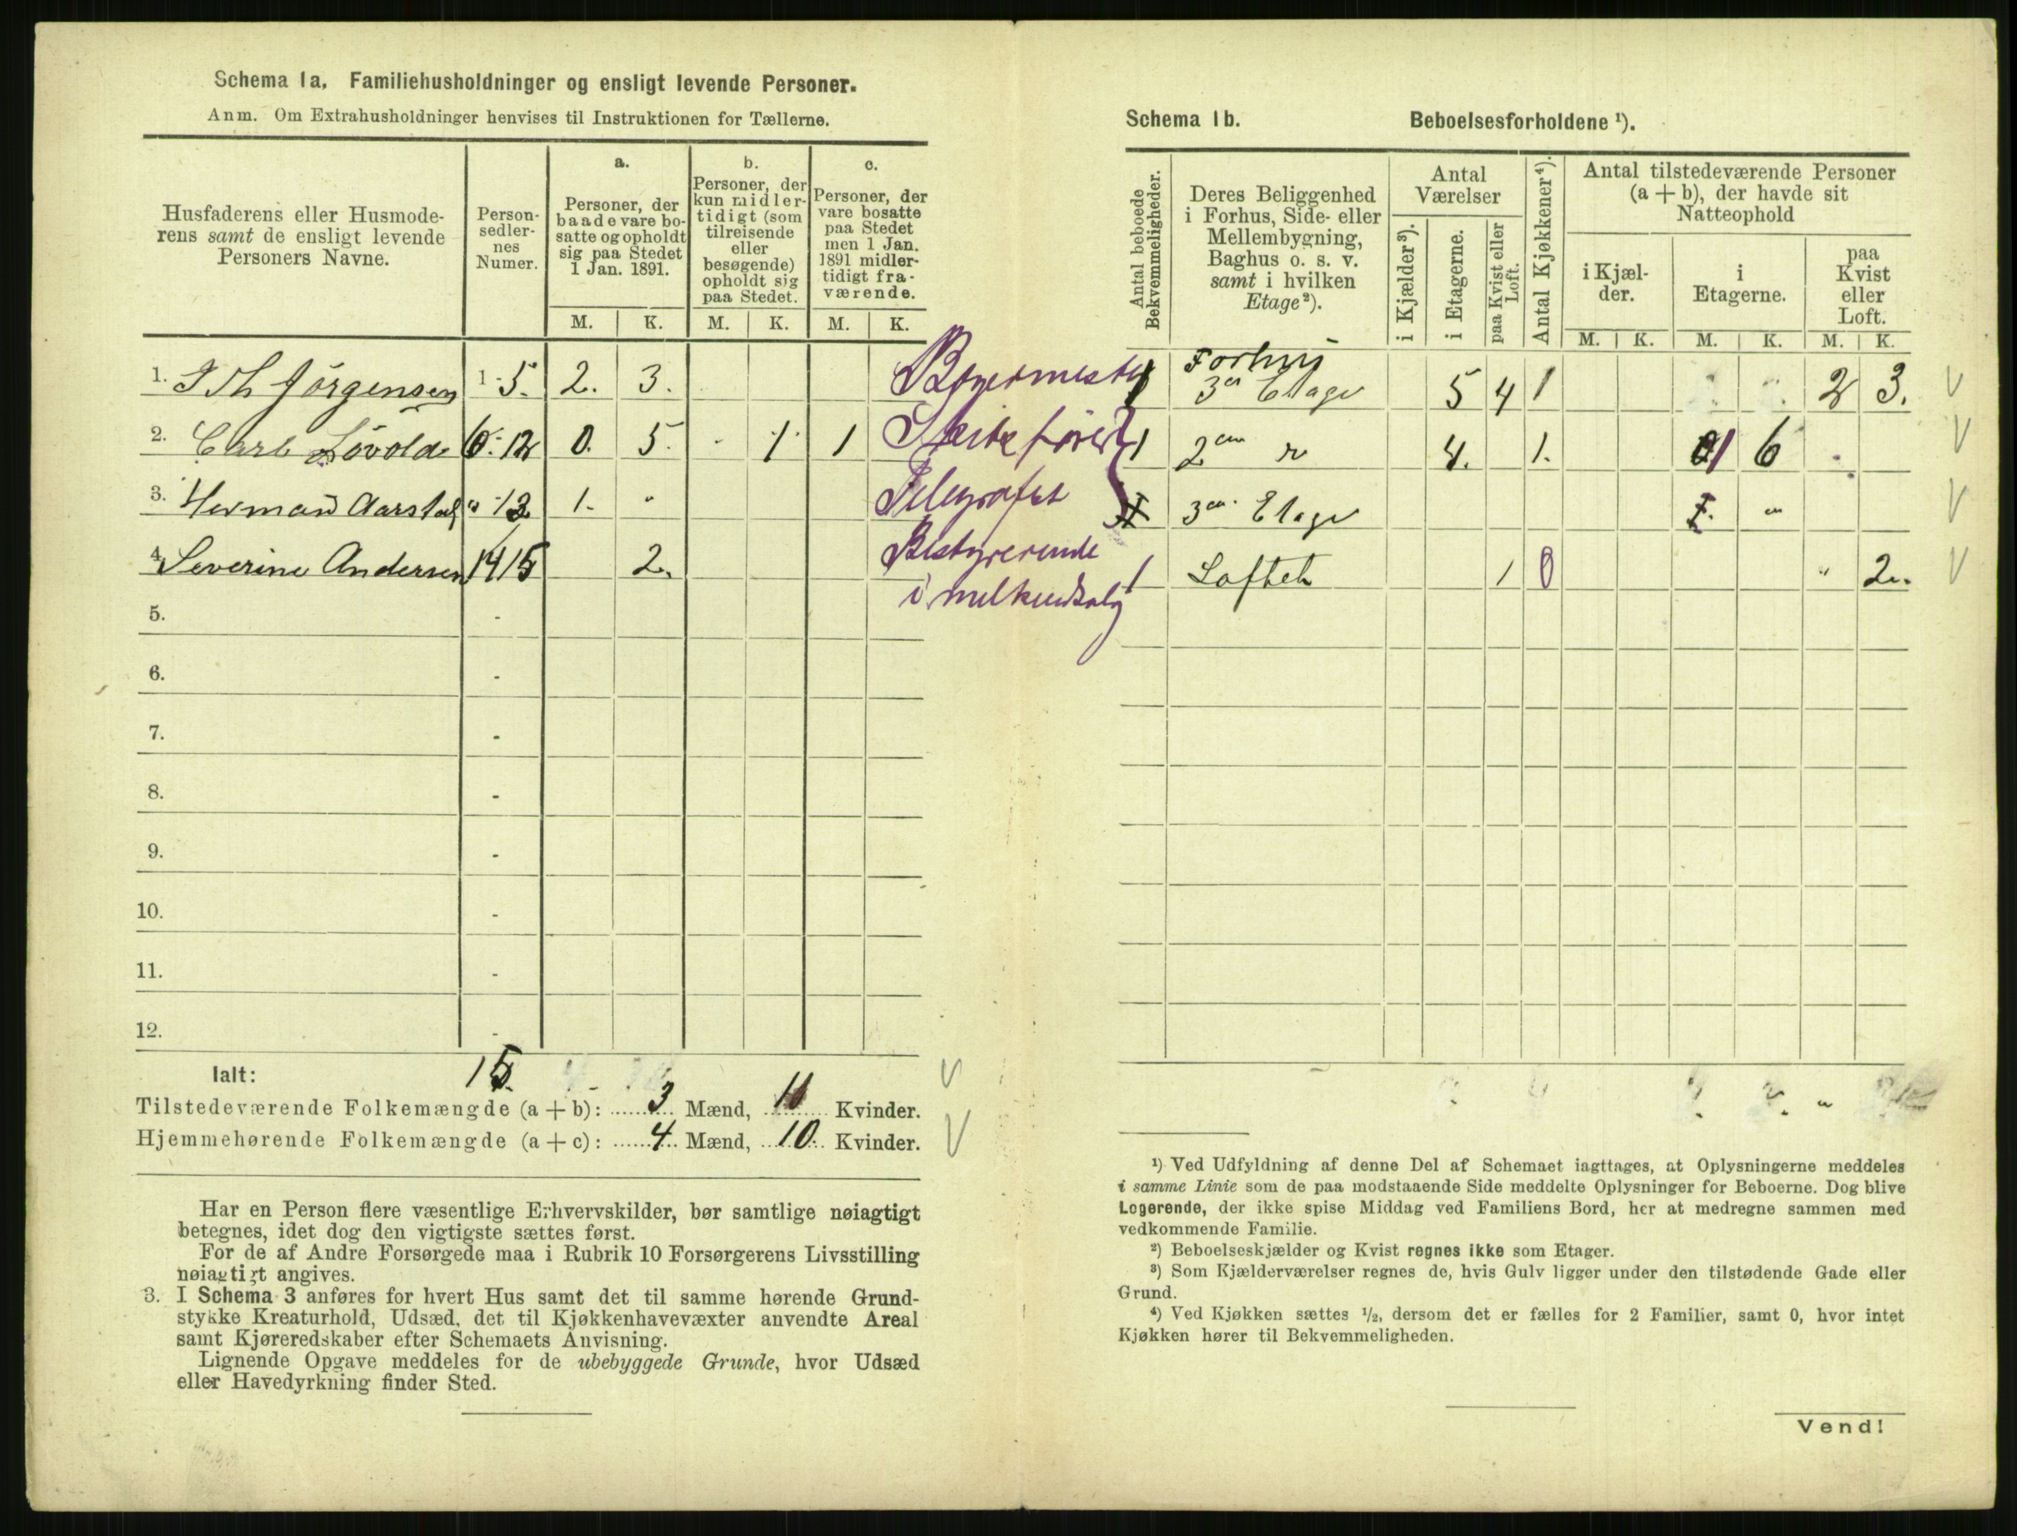 Schema 1a. Familiehusholdninger og ensligt levende Personer.
Anm. Om Extrahusholdninger henvises til Instruktionen for Tællerne.
Husfaderens eller Husmode-
rens samt de ensligt levende
Personers Navne.
Person-
sedler-
nes
Numer.
a.
Personer, der
baade vare bo-
satte og opholdt
sig paa Stedet
1 Jan. 1891.
b.
Personer, der
kun midler-
tidigt (som
tilreisende
eller
besøgende)
opholdt sig
paa Stedet.
c.
Personer, der
vare bosatte
paa Stedet
men 1 Jan.
1891 midler-
tidigt fra-
værende.
M. K. M. K. M. K.
1. J Th Jörgensen 1-5. 2. 3.
2. Carl Lövold 6-12 0. 5. 1 1
3. Herman Aarstad " 13 1. "
4. Severine Andersen 14 15 2.
5. -
6. -
7. -
8. -
9. -
10. -
11. -
12. -
Ialt: 15.
Tilstedeværende Folkemængde (a + b): 3 Mænd, 11 Kvinder.
Hjemmehørende Folkemængde (a + c): 4 Mænd, 10. Kvinder.
Har en Person flere væsentlige Erhvervskilder, bør samtlige nøiagtigt
betegnes, idet dog den vigtigste sættes først.
For de af Andre Forsørgede maa i Rubrik 10 Forsørgerens Livsstilling
nøiagtigt angives.
3. I Schema 3 anføres for hvert Hus samt det til samme hørende Grund-
stykke Kreaturhold, Udsæd, det til Kjøkkenhavevæxter anvendte Areal
samt Kjøreredskaber efter Schemaets Anvisning.
Lignende Opgave meddeles for de ubebyggede Grunde, hvor Udsæd
eller Havedyrkning finder Sted.
Bøgermester
Skibsfører
Telegrafist
Bestyrerende
i melkeudsalg
Schema 1b. Beboelsesforholdene ¹).
Antal beboede
Bekvemmeligheder.
Deres Beliggenhed
i Forhus, Side- eller
Mellembygning,
Baghus o. s. v.
samt i hvilken
Etage²).
Antal
Værelser
i Kjælder³).
i Etagerne.
paa Kvist eller
Loft.
Antal Kjøkkener⁴).
Antal tilstedeværende Personer
(a + b), der havde sit
Natteophold
i Kjæl-
der.
i
Etagerne.
paa
Kvist
eller
Loft.
M. K. M. K. M. K.
Forhus
1 3en Etage 5 4 1 2 3.
1 2en " 4. 1. 1 6
3en Etage 1. "
1 Loftet 1 0 " 2.
¹) Ved Udfyldning af denne Del af Schemaet iagttages, at Oplysningerne meddeles
i samme Linie som de paa modstaaende Side meddelte Oplysninger for Beboerne. Dog blive
Logerende, der ikke spise Middag ved Familiens Bord, her at medregne sammen med
vedkommende Familie.
²) Beboelseskjælder og Kvist regnes ikke som Etager.
³) Som Kjælderværelser regnes de, hvis Gulv ligger under den tilstødende Gade eller
Grund.
⁴) Ved Kjøkken sættes ½, dersom det er fælles for 2 Familier, samt 0, hvor intet
Kjøkken hører til Bekvemmeligheden.
Vend!